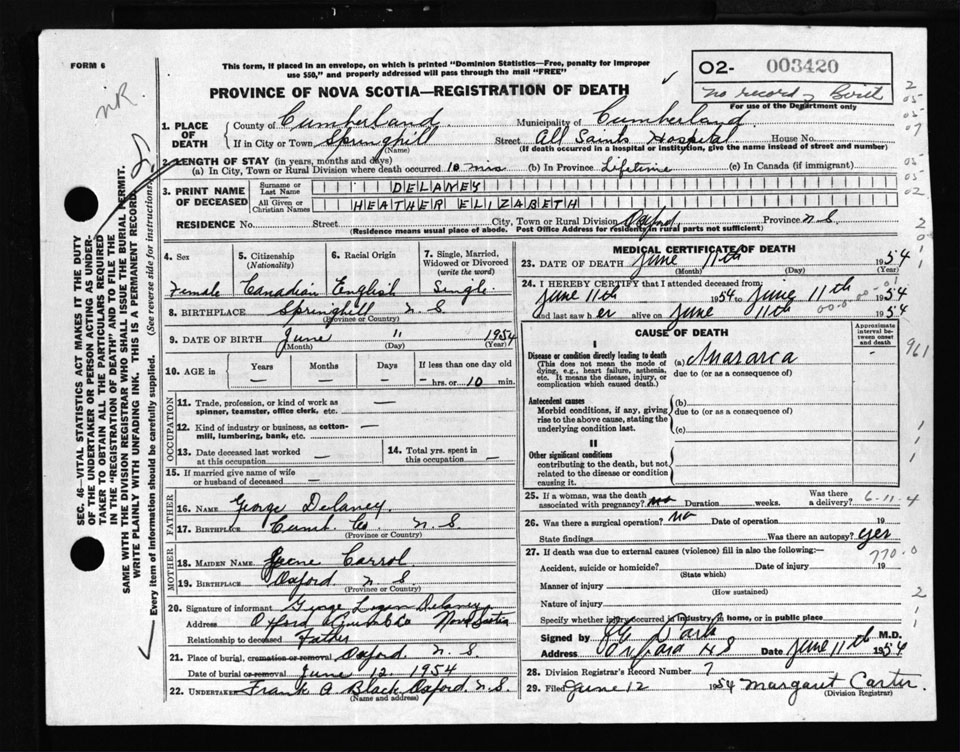 FORM 6
This form, if placed in an envelope, on which is printed "Dominion Statistics—Free, penalty for improper
use $50," and properly addressed will pass through the mail "FREE"
02- 003420
no record Birth
For use of the Department only
NR.
PROVINCE OF NOVA SCOTIA—REGISTRATION OF DEATH
1. PLACE OF DEATH
County of Cumberland Municipality of Cumberland
If in City or Town Springhill (Name) Street All Saints Hospital House No.
(If death occurred in a hospital or institution, give the name instead of street and number)
2. LENGTH OF STAY (in years, months and days)
(a) In City, Town or Rural Division where death occurred 10 mins (b) In Province Lifetime (c) In Canada (if immigrant)
3. PRINT NAME OF DECEASED
Surname or Last Name DELANEY
All Given or Christian Names HEATHER ELIZABETH
RESIDENCE No. Street City, Town or Rural Division Oxford Province N.S.
(Residence means usual place of abode. Post Office Address for residents in rural parts not sufficient)
4. Sex Female
5. Citizenship (Nationality) Canadian
6. Racial Origin English
7. Single, Married, Widowed or Divorced (write the word) Single
8. BIRTHPLACE Springhill N.S.
(Province or Country)
9. DATE OF BIRTH June 11 1954
(Month) (Day) (Year)
10. AGE in Years — Months — Days — If less than one day old — hrs. or 10 min.
OCCUPATION
11. Trade, profession, or kind of work as spinner, teamster, office clerk, etc. —
12. Kind of industry or business, as cotton-mill, lumbering, bank, etc. —
13. Date deceased last worked at this occupation —
14. Total yrs. spent in this occupation —
15. If married give name of wife or husband of deceased —
FATHER
16. Name George Delaney.
17. Birthplace Cumb. Co. N.S.
(Province or Country)
MOTHER
18. Maiden Name Carrol
19. Birthplace Oxford N.S.
(Province or Country)
20. Signature of informant George Logan Delaney
Address Oxford Cumb Co Nova Scotia
Relationship to deceased Father
21. Place of burial, cremation or removal Oxford N.S.
Date of burial or removal June 12 1954
22. Undertaker Frank A. Black Oxford, N.S.
(Name and address)
MEDICAL CERTIFICATE OF DEATH
23. DATE OF DEATH June 11th 1954
(Month) (Day) (Year)
24. I HEREBY CERTIFY that I attended deceased from:
June 11th 1954 to June 11th 1954
and last saw her alive on June 11th 1954
CAUSE OF DEATH
Approximate interval between onset and death
I
Disease or condition directly leading to death
This does not mean the mode of dying, e.g., heart failure, asthenia, etc. It means the disease, injury, or complication which caused death.)
(a)
due to (or as a consequence of)
Antecedent causes
Morbid conditions, if any, giving rise to the above cause, stating the underlying condition last.
(b)
due to (or as a consequence of)
(c)
II
Other significant conditions
contributing to the death, but not related to the disease or condition causing it.
25. If a woman, was the death associated with pregnancy? no Duration weeks. Was there a delivery? 6-11-4
26. Was there a surgical operation? no Date of operation 19
State findings Was there an autopsy? yes
27. If death was due to external causes (violence) fill in also the following:—
770-0
Accident, suicide or homicide? Date of injury 19
(State which)
Manner of injury
(How sustained)
Nature of injury
Specify whether injury occurred in industry, in home, or in public place
Signed by M.D.
Address Oxford N S Date June 11th 1954
28. Division Registrar's Record Number 7
29. Filed June 12 1954 Margaret Carter.
(Division Registrar)
SEC. 46—VITAL STATISTICS ACT MAKES IT THE DUTY
OF THE UNDERTAKER OR PERSON ACTING AS UNDER-
TAKER TO OBTAIN ALL THE PARTICULARS REQUIRED
IN THE "REGISTRATION OF DEATH" AND TO FILE THE
SAME WITH THE DIVISION REGISTRAR WHO SHALL ISSUE THE BURIAL PERMIT.
WRITE PLAINLY WITH UNFADING INK. THIS IS A PERMANENT RECORD
Every item of information should be carefully supplied. (See reverse side for instructions)
961